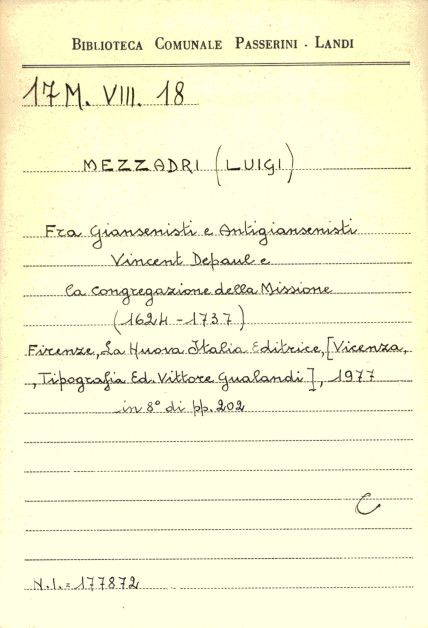 BIBLIOTECA COMUNALE PASSERINI - LANDI
17 M. VIII. 18
MEZZADRI (LUIGI)
Fra Giansenisti e Antigiansenisti
Vincent Depaul e
la Congregazione della Missione
(1624 - 1737)
Firenze, La Nuova Italia Editrice, [Vicenza,
, Tipografia Ed. Vittore Gualandi], 1977
in 8° di pp. 202
C
N.I. = 177872